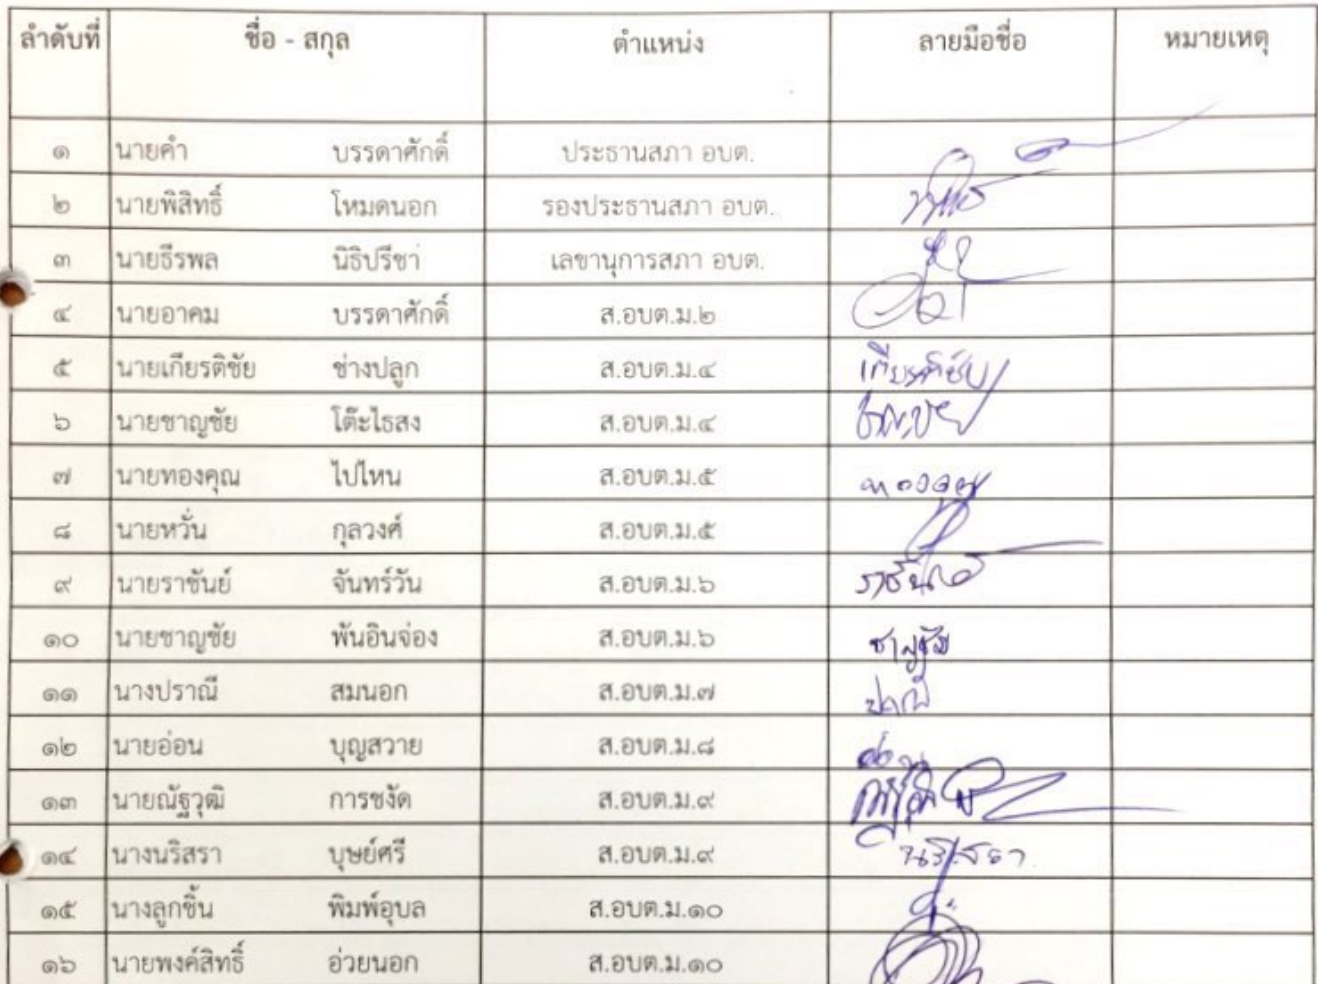 ลำดับที่ ชื่อ - สกุล ตำแหน่ง ลายมือชื่อ หมายเหตุ
๑ นายคำ บรรดาศักดิ์ ประธานสภา อบต.
๒ นายพิสิทธิ์ โหมดนอก รองประธานสภา อบต.
๓ นายธีรพล นิธิปรีชา เลขานุการสภา อบต.
๔ นายอาคม บรรดาศักดิ์ ส.อบต.ม.๒
๕ นายเกียรติชัย ช่างปลูก ส.อบต.ม.๔ เกียรติชัย
๖ นายชาญชัย โต๊ะไธสง ส.อบต.ม.๔ ชาญชัย
๗ นายทองคุณ ไปไหน ส.อบต.ม.๕ ทองคุณ
๘ นายหวั่น กุลวงศ์ ส.อบต.ม.๕
๙ นายราชันย์ จันทร์วัน ส.อบต.ม.๖
๑๐ นายชาญชัย พันอินจ่อง ส.อบต.ม.๖ ชาญชัย
๑๑ นางปราณี สมนอก ส.อบต.ม.๗
๑๒ นายอ่อน บุญสวาย ส.อบต.ม.๘
๑๓ นายณัฐวุฒิ การชงัด ส.อบต.ม.๙
๑๔ นางนริสรา บุษย์ศรี ส.อบต.ม.๙ นริสรา
๑๕ นางลูกชิ้น พิมพ์อุบล ส.อบต.ม.๑๐
๑๖ นายพงค์สิทธิ์ อ่วยนอก ส.อบต.ม.๑๐